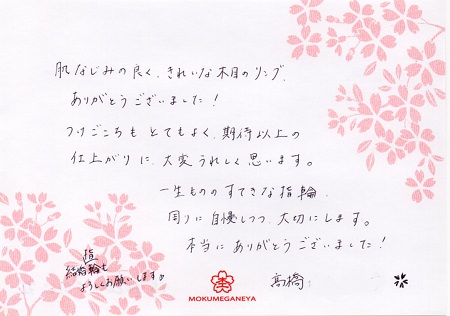 肌なじみの良く、きれいな木目のリング、
ありがとうございました!
つけごこちも とてもよく、期待以上の
仕上がりに、大変うれしく思います。
一生もののすてきな指輪、
周りに自慢しつつ、大切にします。
本当に ありがとうございました!
結婚指輪も
よろしくお願いします
MOKUMEGANEYA
髙橋